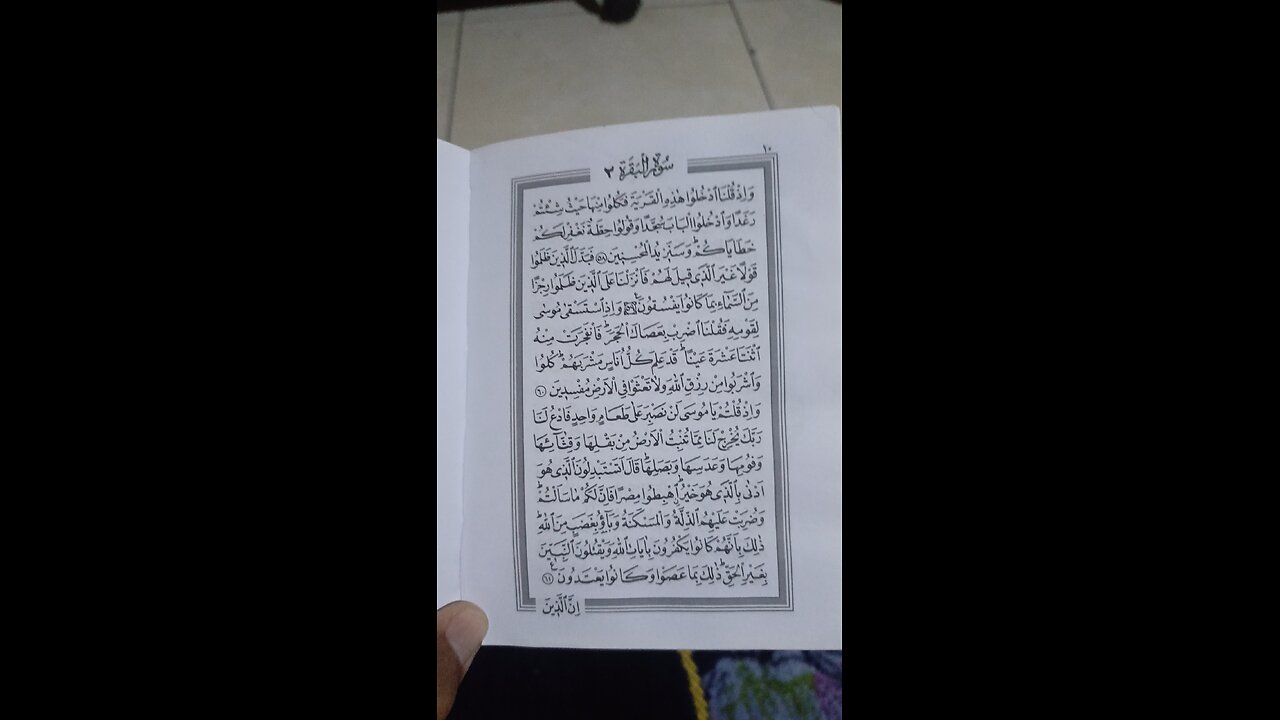 ١٠
سُورَةُ الْبَقَرَةِ ٢
وَاِذْ قُلْنَا ادْخُلُوا هٰذِهِ الْقَرْيَةَ فَكُلُوا مِنْهَا حَيْثُ شِئْتُمْ
رَغَدًا وَادْخُلُوا الْبَابَ سُجَّدًا وَقُولُوا حِطَّةٌ نَغْفِرْ لَكُمْ
خَطَايَاكُمْۜ وَسَنَزِيدُ الْمُحْسِنِينَ ﴿٥٨﴾ فَبَدَّلَ الَّذِينَ ظَلَمُوا
قَوْلًا غَيْرَ الَّذِي قِيلَ لَهُمْ فَاَنْزَلْنَا عَلَى الَّذِينَ ظَلَمُوا رِجْزًا
مِنَ السَّمَاءِ بِمَا كَانُوا يَفْسُقُونَ ﴿٥٩﴾ وَاِذِ اسْتَسْقٰى مُوسٰى
لِقَوْمِهِ فَقُلْنَا اضْرِبْ بِعَصَاكَ الْحَجَرَۜ فَانْفَجَرَتْ مِنْهُ
اثْنَتَا عَشْرَةَ عَيْنًاۜ قَدْ عَلِمَ كُلُّ اُنَاسٍ مَشْرَبَهُمْۜ كُلُوا
وَاشْرَبُوا مِنْ رِزْقِ اللّٰهِ وَلَا تَعْثَوْا فِي الْاَرْضِ مُفْسِدِينَ ﴿٦٠﴾
وَاِذْ قُلْتُمْ يَا مُوسٰى لَنْ نَصْبِرَ عَلٰى طَعَامٍ وَاحِدٍ فَادْعُ لَنَا
رَبَّكَ يُخْرِجْ لَنَا مِمَّا تُنْبِتُ الْاَرْضُ مِنْ بَقْلِهَا وَقِثَّائِهَا
وَفُومِهَا وَعَدَسِهَا وَبَصَلِهَاۜ قَالَ اَتَسْتَبْدِلُونَ الَّذِي هُوَ
اَدْنٰى بِالَّذِي هُوَ خَيْرٌۜ اِهْبِطُوا مِصْرًا فَاِنَّ لَكُمْ مَا سَاَلْتُمْۜ
وَضُرِبَتْ عَلَيْهِمُ الذِّلَّةُ وَالْمَسْكَنَةُ وَبَاؤُ بِغَضَبٍ مِنَ اللّٰهِۜ
ذٰلِكَ بِاَنَّهُمْ كَانُوا يَكْفُرُونَ بِاٰيَاتِ اللّٰهِ وَيَقْتُلُونَ النَّبِيّنَ
بِغَيْرِ الْحَقِّۜ ذٰلِكَ بِمَا عَصَوْا وَكَانُوا يَعْتَدُونَ ﴿٦١﴾
اِنَّ الَّذِينَ